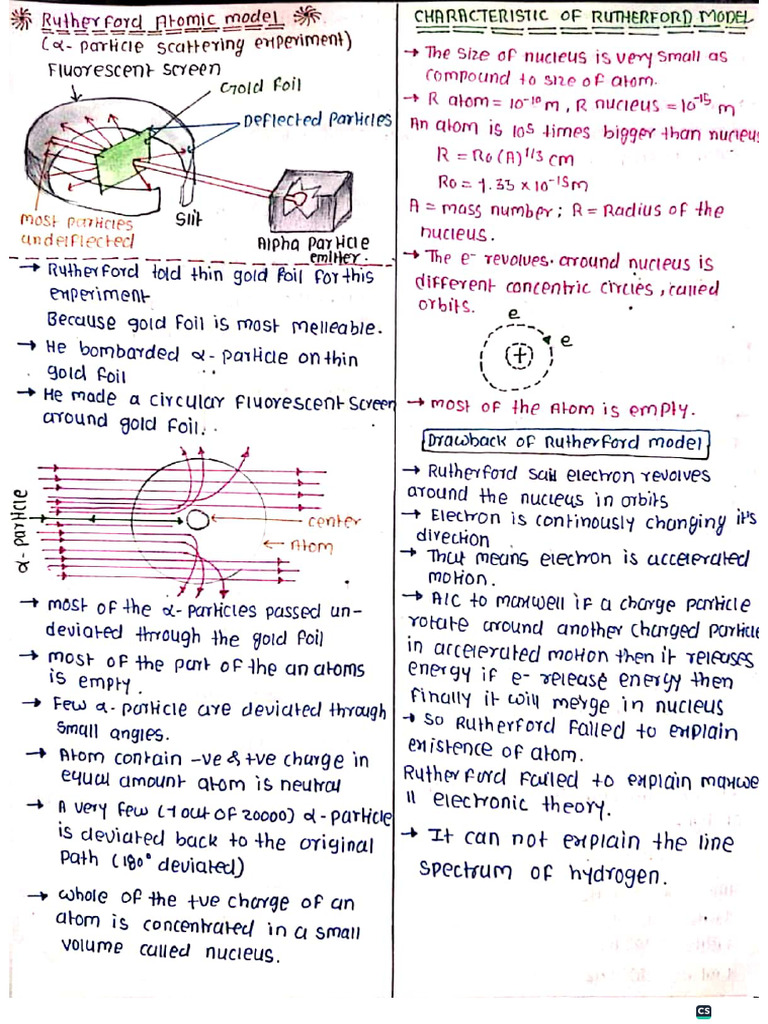 Rutherford Atomic model
(α- particle scattering experiment)
Fluorescent screen
Gold foil
Deflected Particles
most particles
undeflected
Slit
Alpha Particle
emitter.
→ Rutherford told thin gold foil for this
experiment
Because gold foil is most melleable.
→ He bombarded α- particle on thin
gold foil
→ He made a circular fluorescent screen
around gold foil..
α- particle
center
Atom
→ most of the α-particles passed un-
deviated through the gold foil
→ most of the part of the an atoms
is empty.
→ Few α- particle are deviated through
small angles.
→ Atom contain -ve & +ve charge in
equal amount atom is neutral
→ A very few (1 out of 20000) α-particle
is deviated back to the original
path (180° deviated)
→ whole of the +ve charge of an
atom is concentrated in a small
volume called nucleus.
CHARACTERISTIC OF RUTHERFORD MODEL
→ The size of nucleus is very small as
compound to size of atom.
→ R atom = 10⁻¹⁰ m , R nucleus = 10⁻¹⁵ m
An atom is 10⁵ times bigger than nucleus
R = Ro (A)^1/3 cm
Ro = 1.33 × 10⁻¹⁵ m
A = mass number ; R = Radius of the
nucleus.
→ The e⁻ revolves. around nucleus is
different concentric circles, called
orbits.
e
e
+
→ most of the Atom is empty.
Drawback of Rutherford model
→ Rutherford said electron revolves
around the nucleus in orbits
→ Electron is continously changing it's
direction
→ That means electron is accelerated
motion.
→ A/C to maxwell if a charge particle
rotate around another charged particle
in accelerated motion then it releases
energy if e- release energy then
finally it will merge in nucleus
→ so Rutherford failed to explain
existence of atom.
Rutherford failed to explain maxwe
ll electronic theory.
→ It can not explain the line
spectrum of hydrogen.
CS